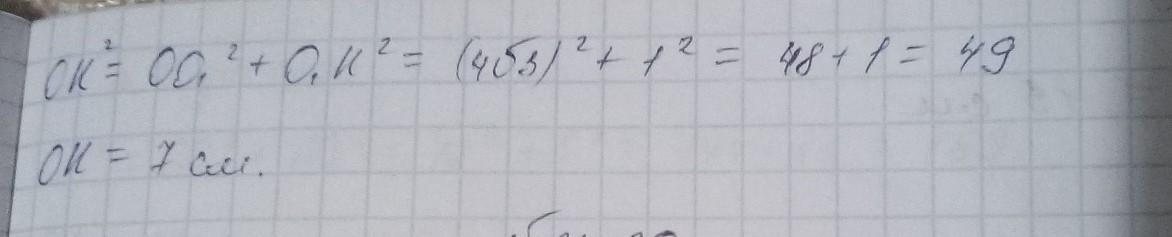 OK² = OO₁² + O₁K² = (4√3)² + 1² = 48 + 1 = 49
OK = 7 см.